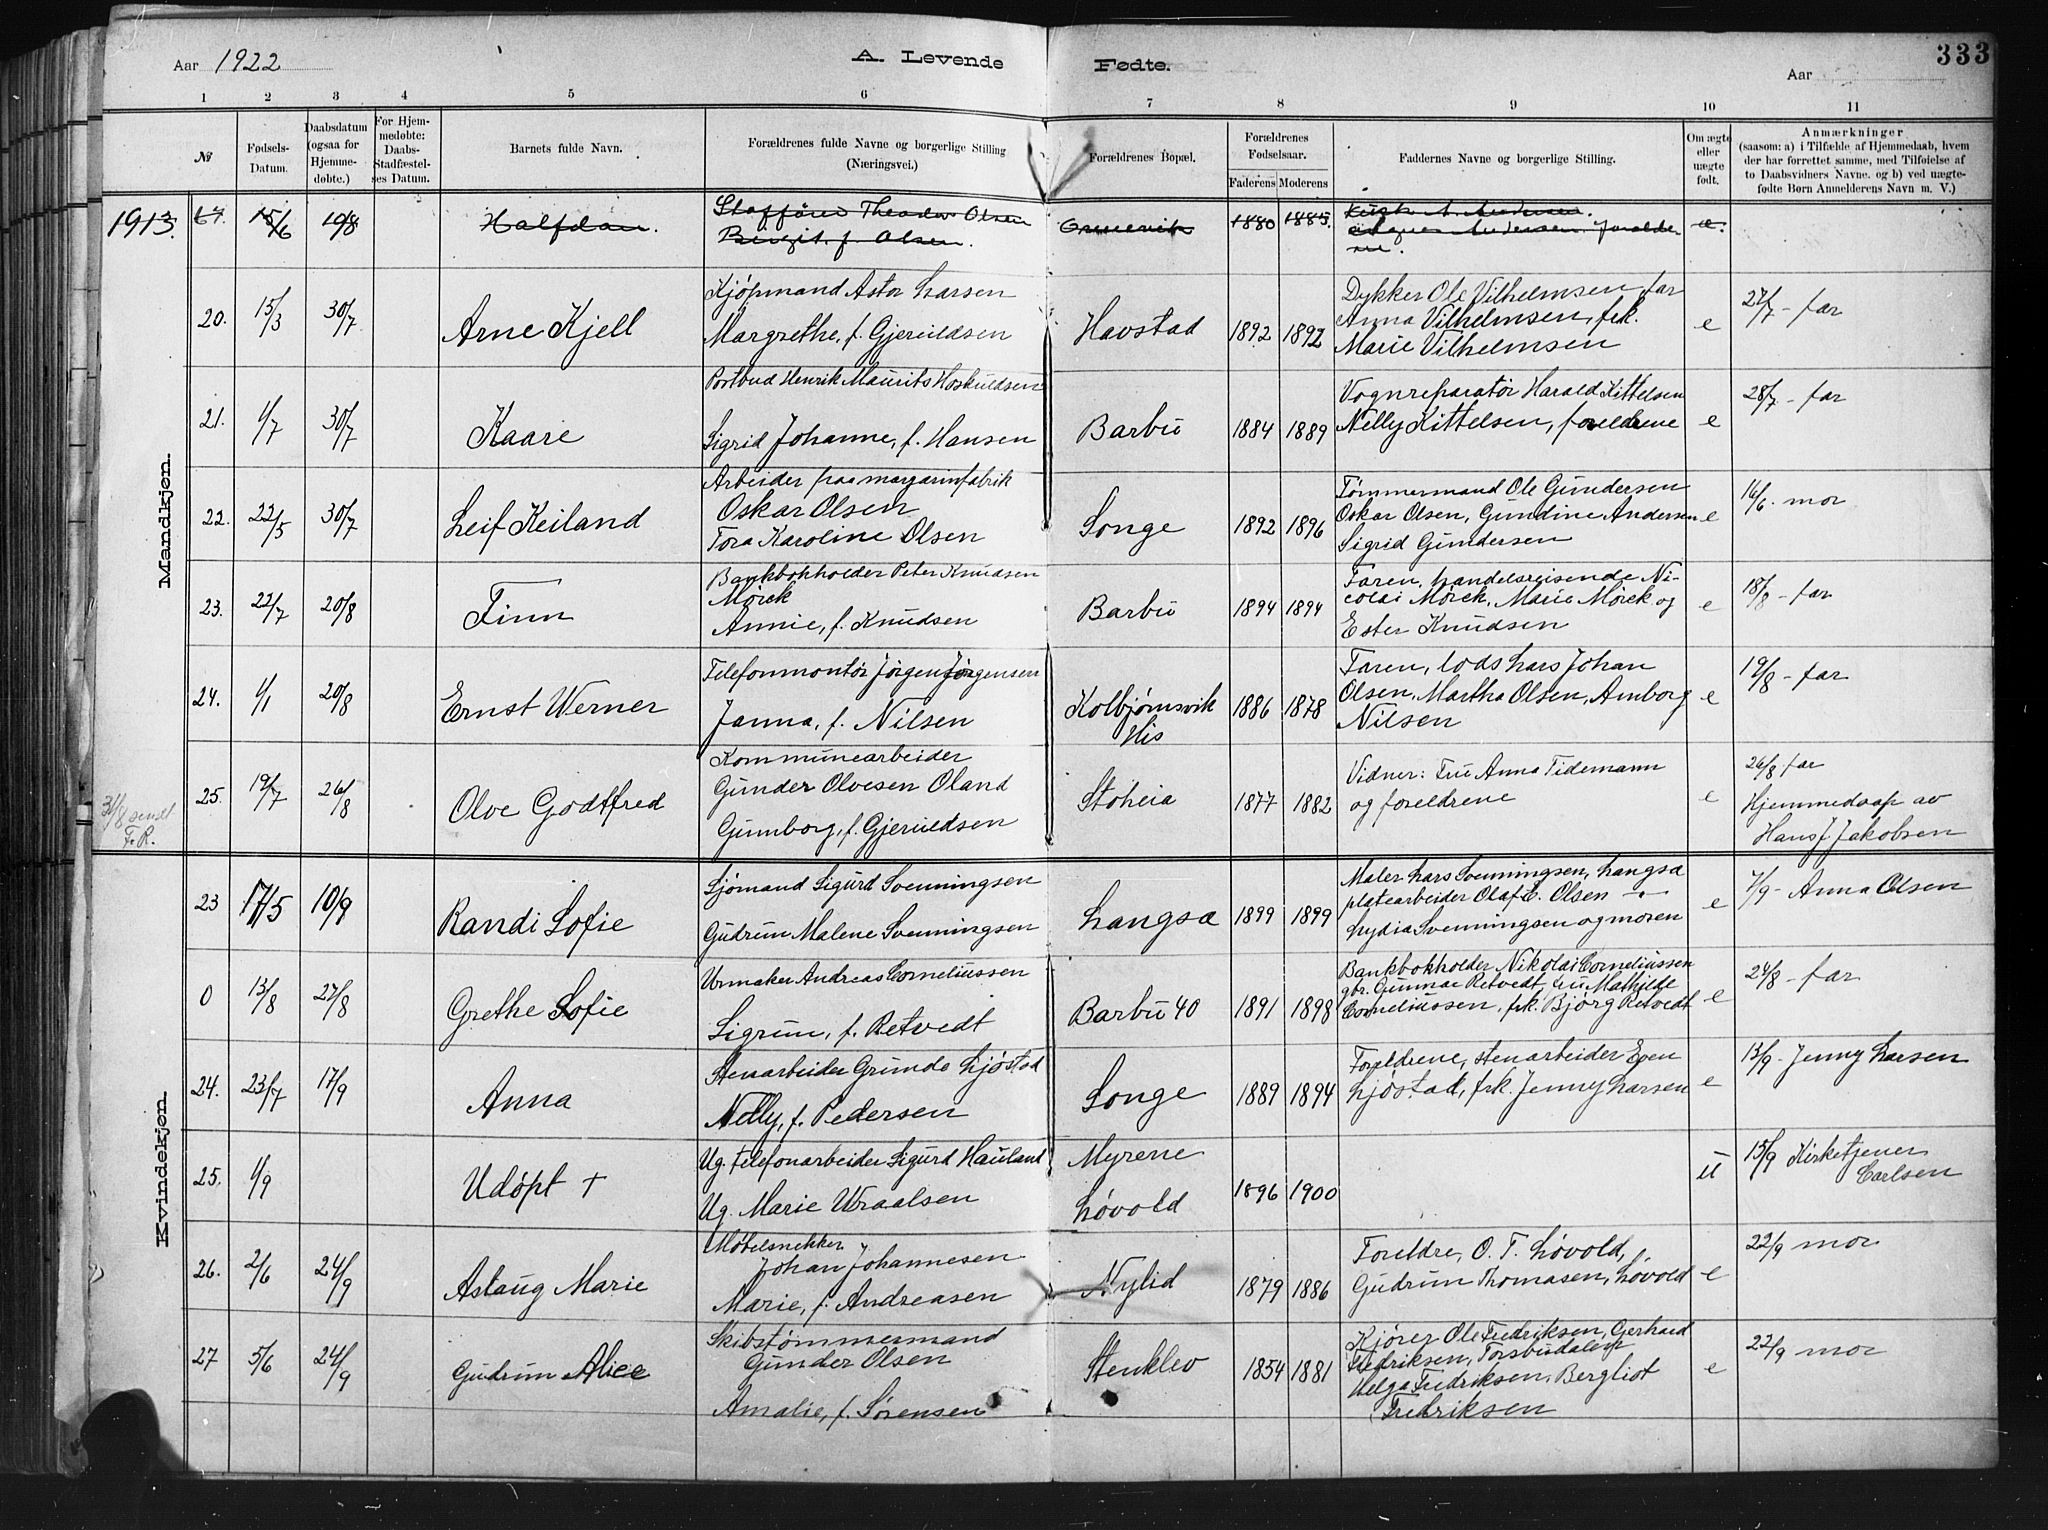 333
Aar 1922
A. Levende Fødte.
Aar
1 2 3 4 5 6 7 8 9 10 11
№
Fødsels-
Datum.
Daabsdatum
(ogsaa for
Hjemme-
døbte.)
For Hjem-
medøbte:
Daabs-
Stadfæstel-
ses Datum.
Barnets fulde Navn.
Forældrenes fulde Navne og borgerlige Stilling
(Næringsvei.)
Forældrenes Bopæl.
Forældrenes
Fødselsaar.
Faderens Moderens
Faddernes Navne og borgerlige Stilling.
Om ægte
eller
uægte
født.
Anmærkninger
(saasom: a) i Tilfælde af Hjemmedaab, hvem
der har forrettet samme, med Tilføielse af
to Daabsvidners Navne. og b) ved uægte-
fødte Børn Anmelderens Navn m. V.)
Mandkjøn.
1913.
67. 15/6 10/8
Halfdan.
Theodor Olsen
Birgit f. Olsen.
1880 1885.
Andersen.
Agnes Andersen. Foreldre-
ne.
e.
20. 15/3 30/7
Arne Kjell
Kjøpmand Astor Larsen
Margrethe, f. Gjeruldsen
Havstad
1892 1892
Dykker Ole Vilhelmsen, far
Anna Vilhelmsen, frk.
Marie Vilhelmsen
e
27/7 - far
21. 1/7 30/7
Kaare
Postbud Henrik Maurits Hoskuldsen
Sigrid Johanne, f. Hansen
Barbu
1884 1889
Vognreparatør Harald Kittelsen
Nelly Kittelsen, foreldrene
e
28/7 - far
22. 22/5 30/7
Leif Keiland
Arbeider paa margarinfabrik
Oskar Olsen
Tora Karoline Olsen
Songe
1892 1896
Tømmermand Ole Gundersen
Oskar Olsen, Gundine Andersen
Sigrid Gundersen
e
16/6. mor
23. 22/7 20/8
Finn
Bankbokholder Peter Knudsen
Mørck
Annie, f. Knudsen
Barbu
1894 1894
Faren, handelsreisende Ni-
colai Mørck, Marie Mørck og
Ester Knudsen
e
18/8 - far
24. 1/1 20/8
Ernst Werner
Telefonmontør Jørgen Jørgensen
Janna, f. Nilsen
Kolbjørnsvik
His
1886 1878
Faren, lods Lars Johan
Olsen, Martha Olsen, Amborg
Nilsen
e
19/8 - far
31/8 sendt
F.R.
25. 19/7 26/8
Olve Godtfred
Kommunearbeider
Gunder Olvesen Oland
Gunborg, f. Gjeruldsen
Stoheia
1877 1882
Vidner: Fru Anna Tidemann
og foreldrene
e
26/8 far
Hjemmedaap av
Hans J. Jakobsen
Kvindekjøn.
23 17/5 10/9
Randi Sofie
Sjømand Sigurd Svenningsen
Gudrun Malene Svenningsen
Langsæ
1899 1899
Maler Lars Svenningsen, Langsæ
platearbeider Olaf C. Olsen -"-
Lydia Svenningsen og moren
e
7/9 - Anna Olsen
0 13/8 27/8
Grethe Sofie
Urmaker Andreas Corneliussen
Sigrun, f. Retvedt
Barbu 40
1891 1898
Bankbokholder Nikolai Corneliussen
gbr. Gunnar Retvedt, fru Mathilde
Corneliussen, frk. Bjørg Retvedt
e
24/8 - far
24. 23/7 17/9
Anna
Stenarbeider Grunde Ljøstad
Nelly, f. Pedersen
Songe
1889 1894
Foreldrene, stenarbeider Even
Ljøstad, frk. Jenny Larsen
e
13/9 - Jenny Larsen
25. 1/9
Udøpt +
Ug. telefonarbeider Sigurd Hauland
Ug. Marie Wraalsen
Myrene
Løvold
1896 1900
u
15/9 Kirketjener
Carlsen
26. 2/6 24/9
Aslaug Marie
Møbelsnekker
Johan Johannesen
Marie, f. Andreasen
Nylid
1879 1886
Foreldre, O. T. Løvold,
Gudrun Thomasen, Løvold
e
22/9 mor
27 5/6 24/9
Gudrun Alice
Skibstømmermand
Gunder Olsen
Amalie, f. Sørensen
Stenklev
1854 1881
Kjører Ole Fredriksen, Gerhard
Fredriksen, Torsbudalen
Helga Fredriksen, Bergliot
Fredriksen
e
22/9 mor